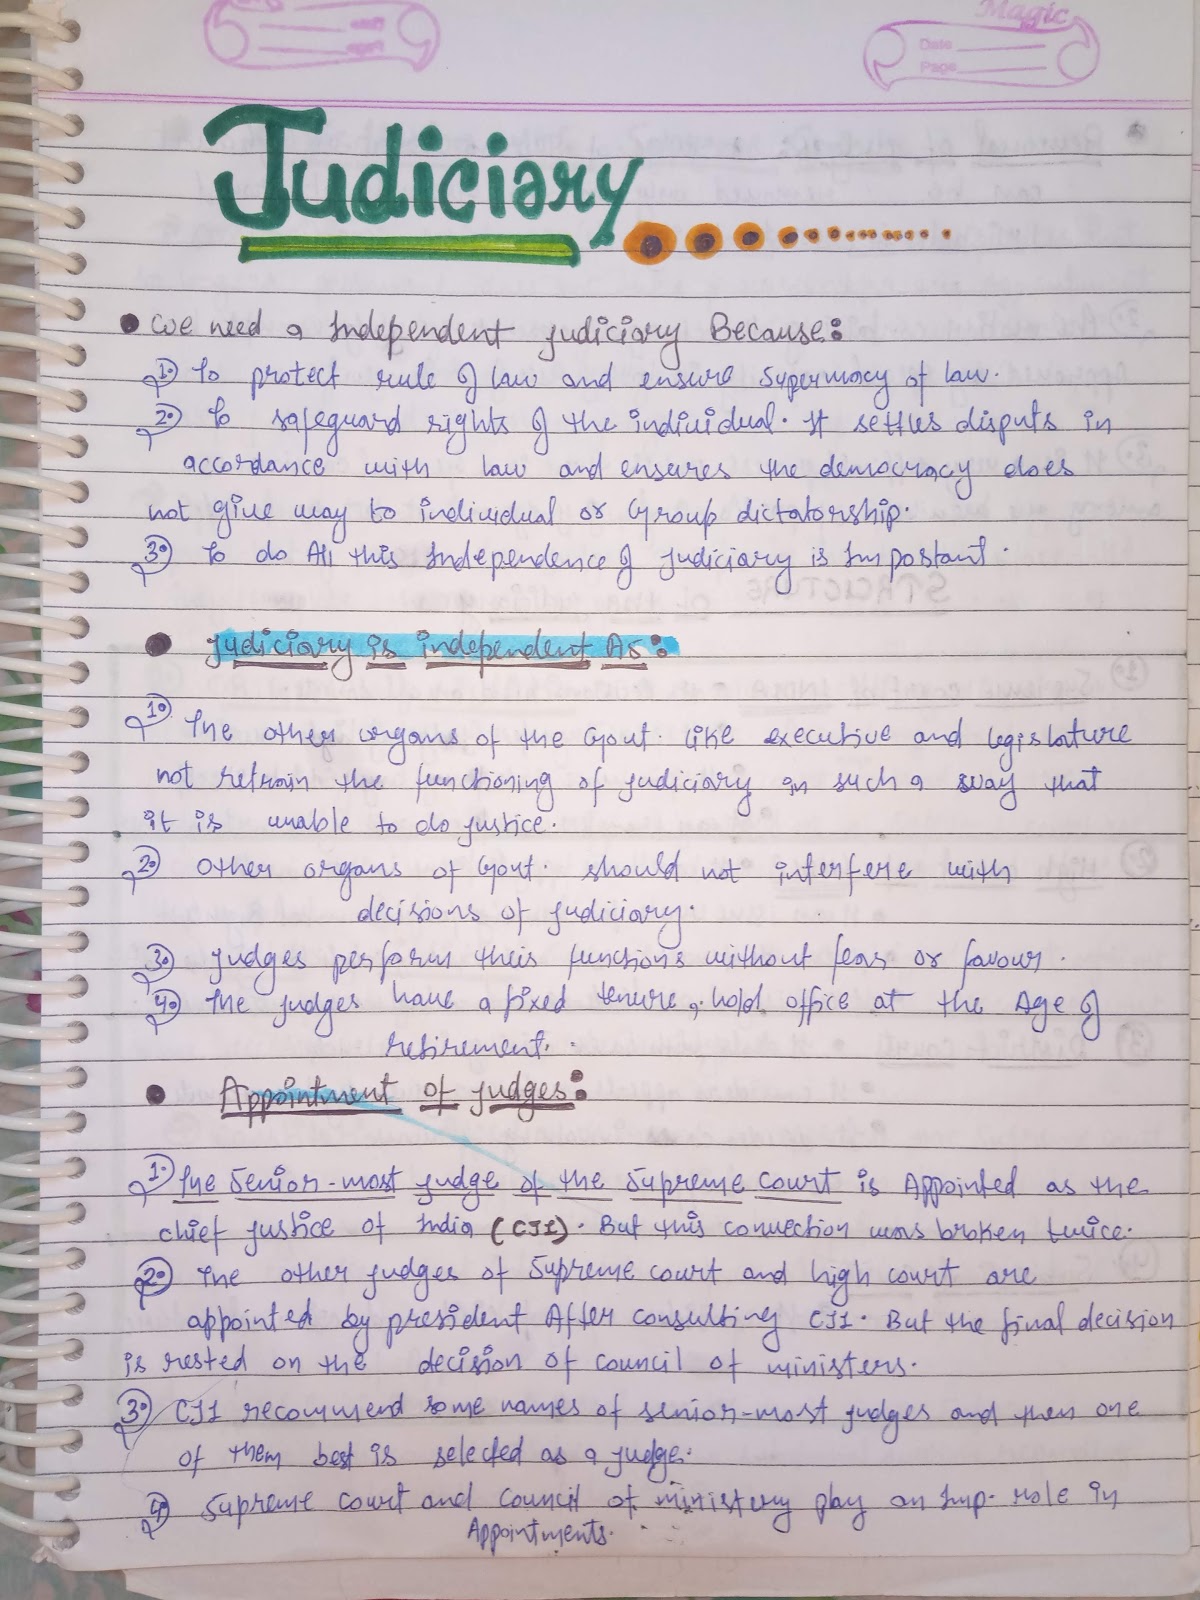 Magic
Date
Page
Judiciary
• We need a Independent judiciary Because:
1. To protect rule of law and ensure Supermacy of law.
2. To safeguard rights of the individual. It settles disputs in
accordance with law and ensures the democracy does
not give way to individual or Group dictatorship.
3. To do All this Independence of judiciary is Important.
• judiciary is independent As:
1. The other organs of the Govt. like executive and legislature
not retrain the functioning of judiciary in such a way that
it is unable to do justice.
2. Other organs of Govt. should not interfere with
decisions of judiciary.
3. judges perform their functions without fear or favour.
4. The judges have a fixed tenure, hold office at the Age of
retirement.
• Appointment of judges:
1. The Senior-most judge of the Supreme Court is Appointed as the
chief justice of India (CJI). But this convection was broken twice.
2. The other judges of Supreme court and high court are
appointed by president After consulting CJI. But the final decision
is rested on the decision of council of ministers.
3. CJI recommend some names of senior-most judges and then one
of them best is selected as a judge.
4. Supreme court and Council of ministery play an Imp. role in
Appointments.